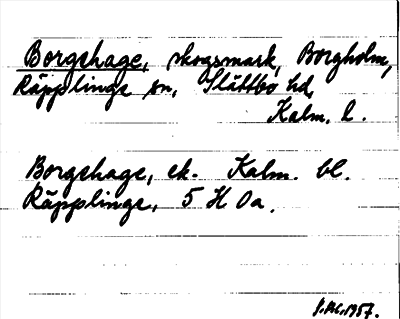 Borgehage, skogsmark, Borgholm,
Räpplinge sn, Slättbo hd,
Kalm. l.
Borgehage, ek. Kalm. bl.
Räpplinge, 5 H 0a.
1957.